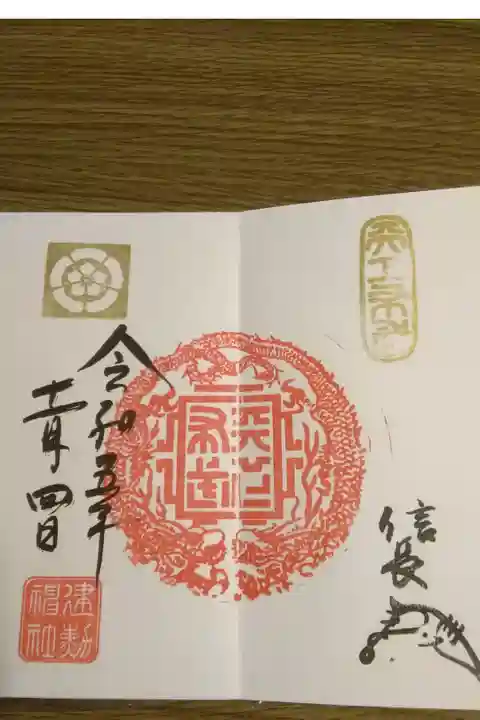 天下布武
信長
天下
布武
令和五年
十一月四日
建勲
神社